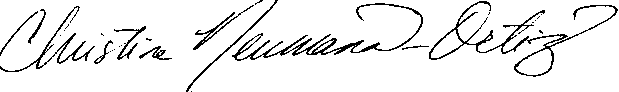 Christine Neumann-Ortiz